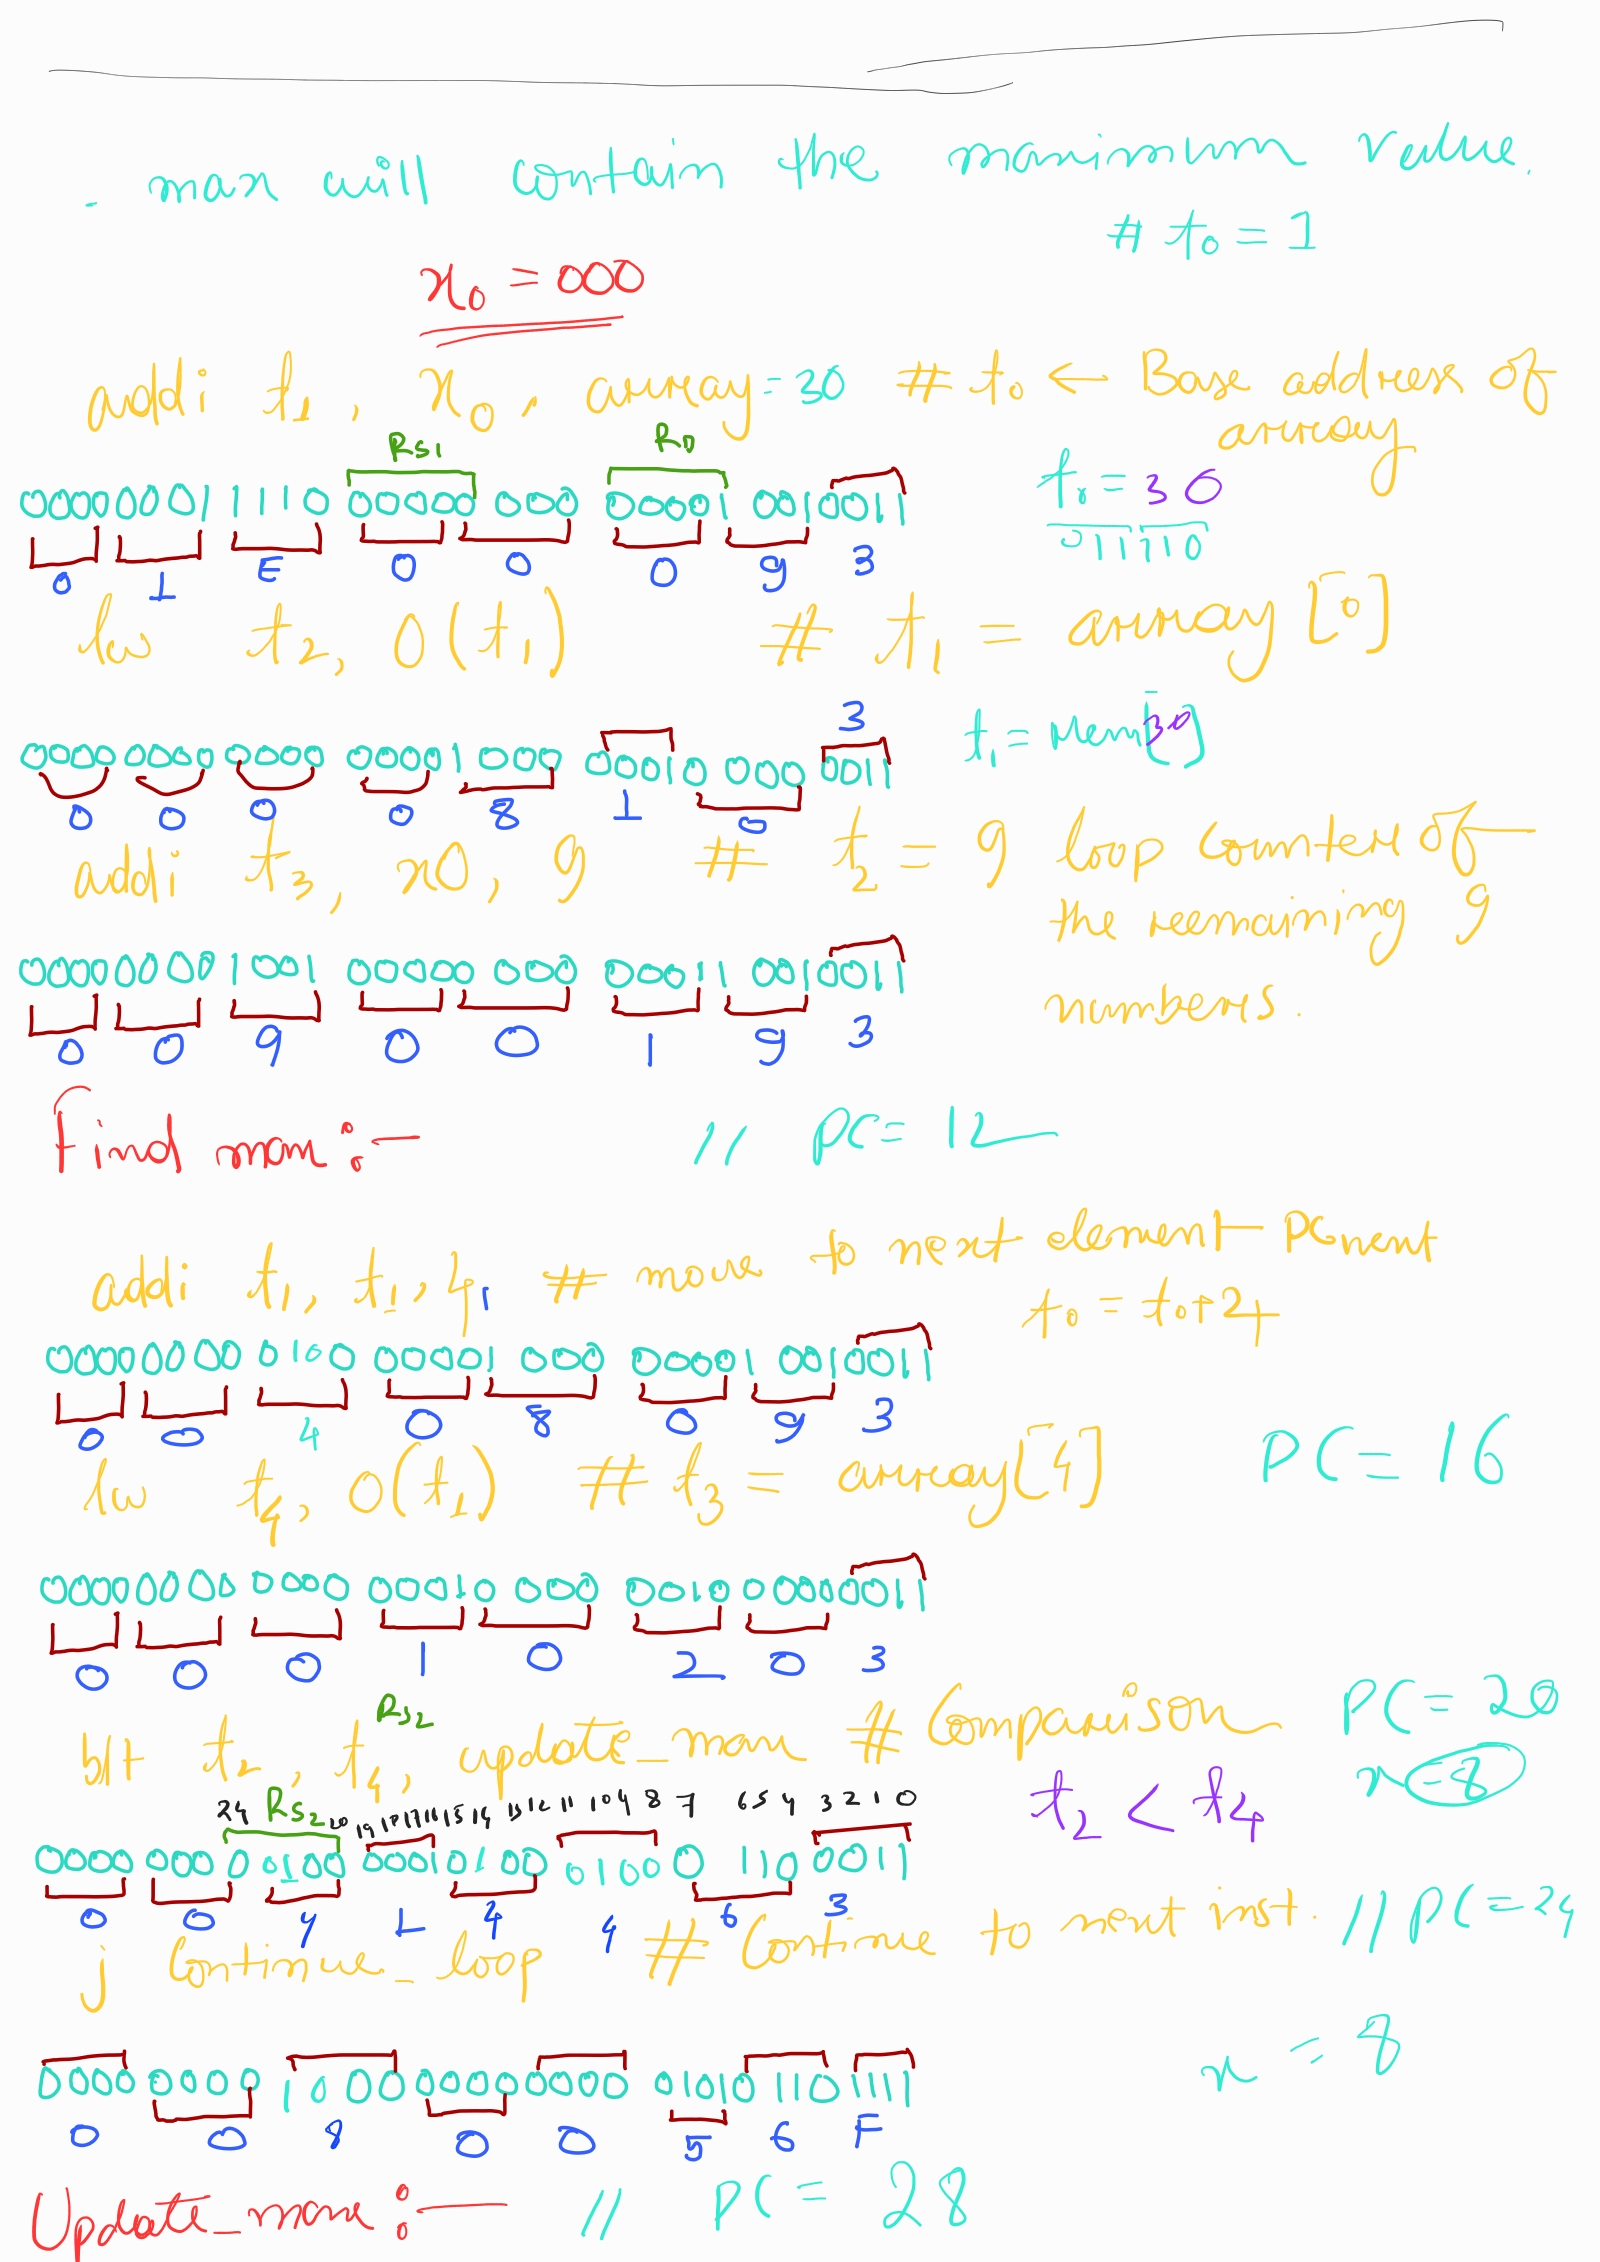 . max will contain the maximum value.
# t0 = 1
x0 = 000
addi t1, x0, array = 30 # t0 ← Base address of
array
Rs1 RD
0000 0001 1110 00000 000 00001 0010011
t0 = 30
011110
0 1 E 0 0 0 9 3
lw t2, 0(t1) # t1 = array [0]
3
t1 = Mem[30]
0000 0000 0000 00001 000 00010 000 0011
0 0 0 0 8 1 0
addi t3, x0, 9 # t2 = 9 loop counter of
the remaining 9
0000 0000 1001 00000 000 00011 0010011
numbers.
0 0 9 0 0 1 9 3
Find max :- // PC = 12
addi t1, t1, 4 # move to next element PC next
t0 = t0+4
0000 0000 0100 00001 000 00001 0010011
0 0 4 0 8 0 9 3
PC = 16
lw t4, 0(t1) # t3 = array[4]
0000 0000 0000 00010 000 0010 0000011
0 0 0 1 0 2 0 3
Rs2
PC = 20
blt t2, t4, update_max # Comparison
x = 8
24 Rs2 20 19 18 17 16 15 14 13 12 11 10 9 8 7 6 5 4 3 2 1 0
t2 < t4
0000 000 0 0100 00010 100 0100 0 110 0011
0 0 4 1 4 4 6 3
j Continue_loop # Continue to next inst. // PC = 24
x = 8
0000 0000 1000 0000 0000 0101 0110 1111
0 0 8 0 0 5 6 F
Update_max :- // PC = 28